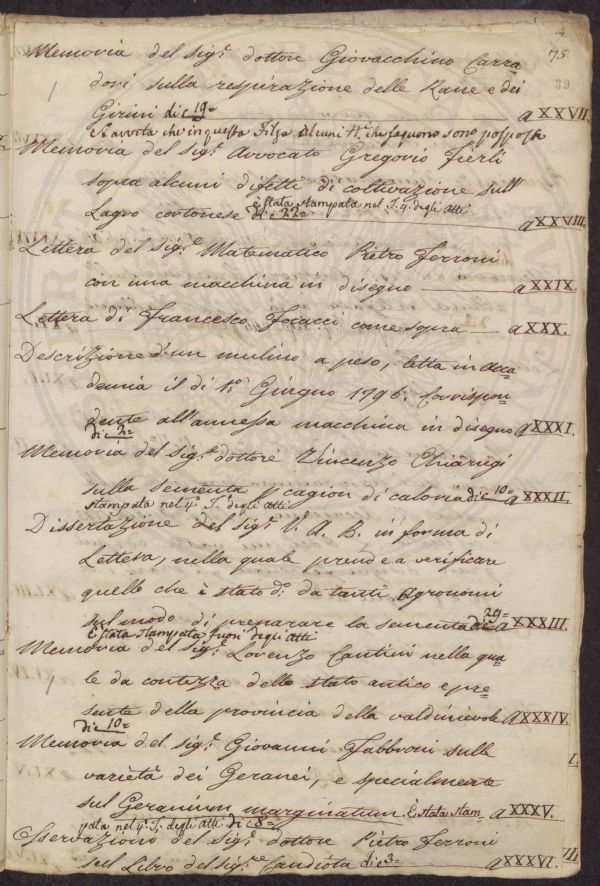 75
39
Memoria del sig.r dottore Giovacchino Carra
dori sulla respirazione delle Rane e dei
Girini di c 19= a XXVII.
Si avverta che in questa Filza alcuni N.i che seguono sono posposti
Memoria del sig.r Avvocato Gregorio Fierli
sopra alcuni difetti di coltivazione sull'
è stata stampata nel T. 4. degli Atti
Lagro cortonese di c 22= a XXVIII.
Lettera del sig.e Matematico Pietro Ferroni
con una macchina in disegno a XXIX.
Lettera di Francesco Focacci come sopra a XXX.
Descrizione d'un mulino a peso, letta in Acca
demia il di 1.o Giugno 1796. Corrispon
dente all'annessa macchina in disegno a XXXI.
di c 2=
Memoria del sig.e dottore Vincenzo Chiarugi
sulla sementa p cagion di caloria di c 10= a XXXII.
stampata nel 4.o T. degli Atti
Dissertazione del sig.r V. A. B. in forma di
Lettera, nella quale prende a verificare
quello che è stato d.o da tanti Agronomi
sul modo di preparare la sementa di c 29= a XXXIII.
È stata stampata fuori degli Atti
Memoria del sig.r Lorenzo Cantini nella qua
le da contezza dello stato antico e pre
sente della provincia della valdinievole a XXXIV.
di c 10=
Memoria del sig.r Giovanni Fabbroni sulle
varietà dei Geranei, e specialmente
sul Geranium marginatum. È stata stam- a XXXV.
pata nel 4.o T. degli Atti di c 8=
Osservazione del sig.r dottore Pietro Ferroni
sul Libro del sig.re Candiota di c 3= a XXXVI.